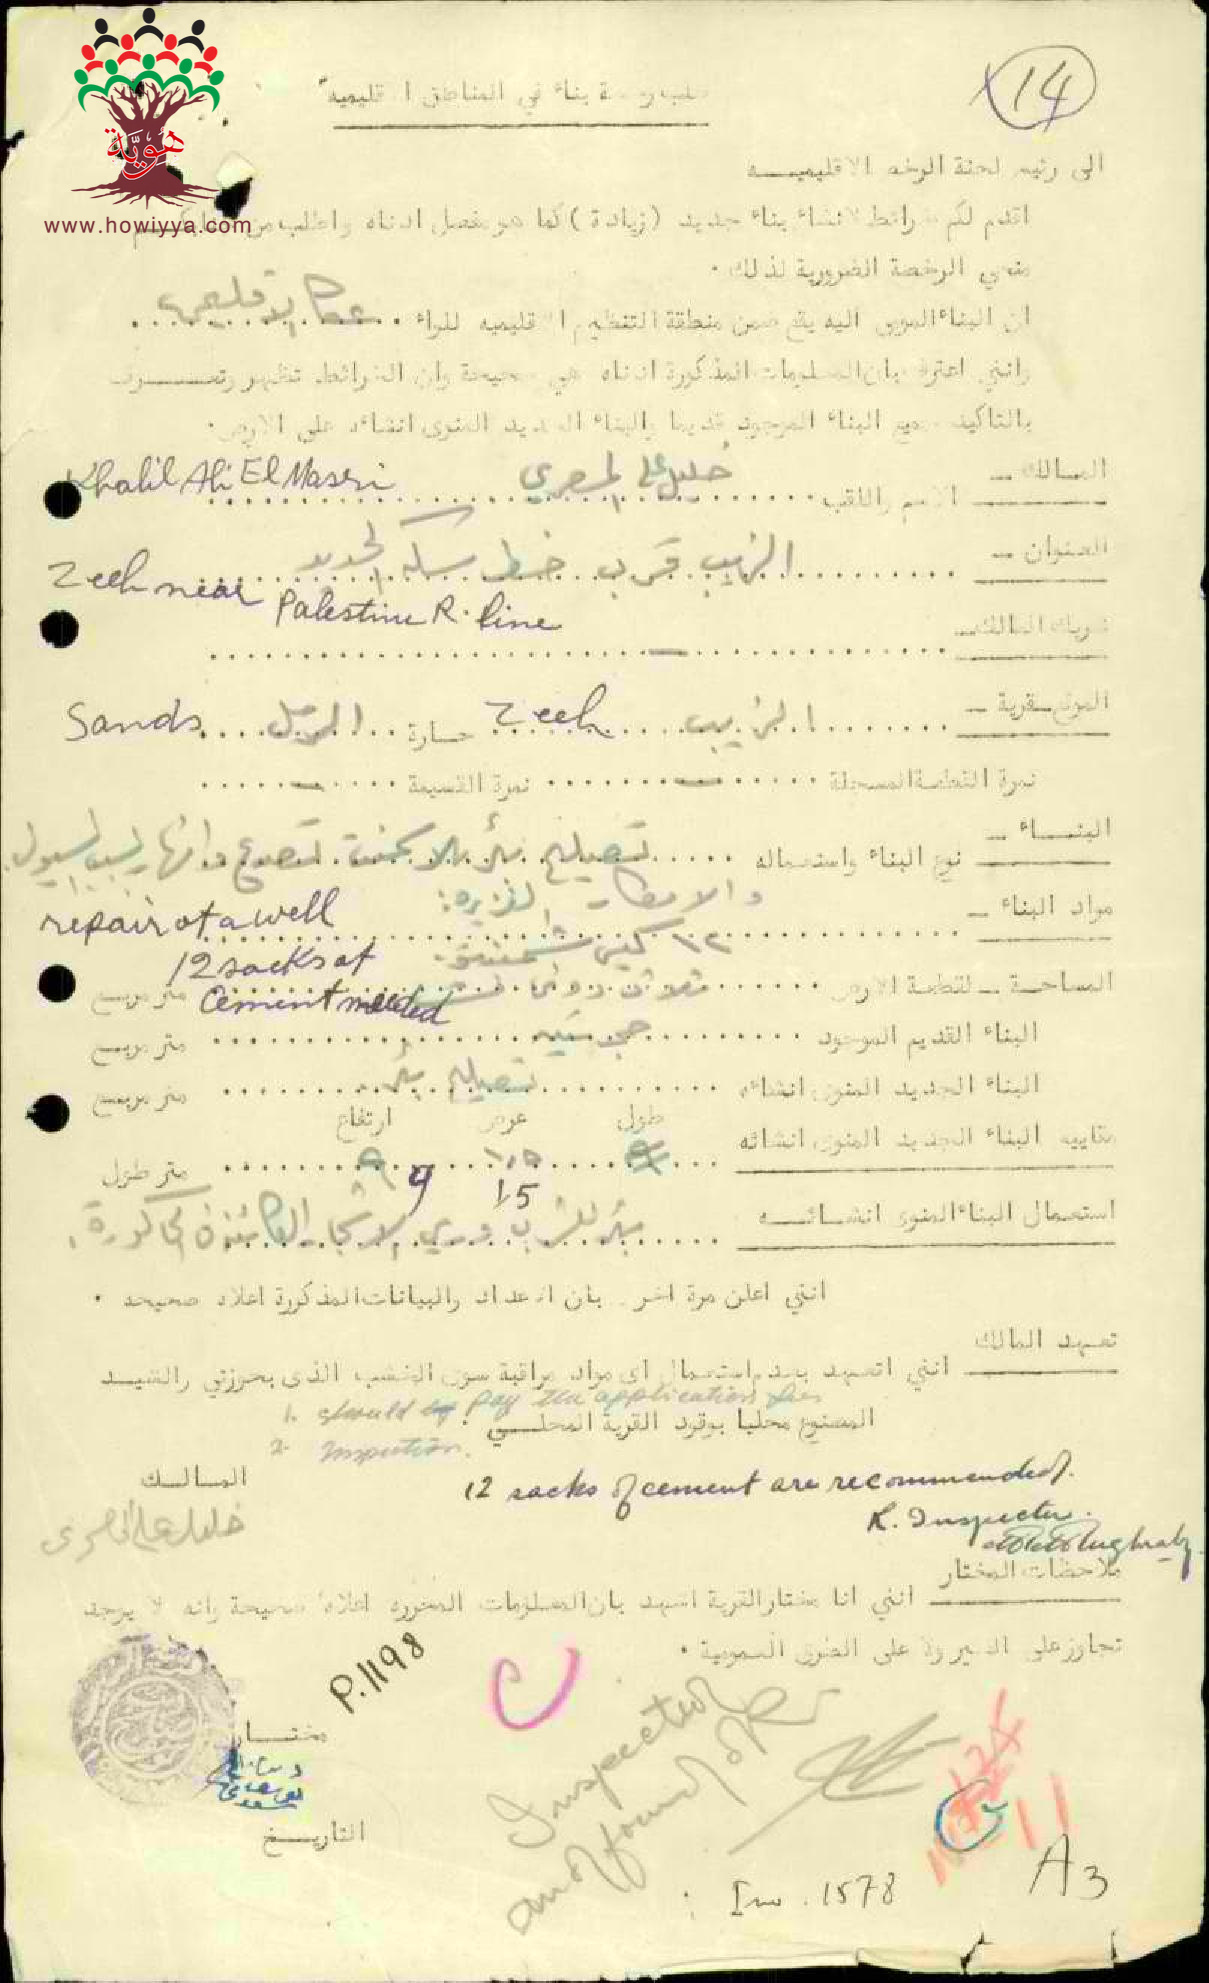 14
هوية
www.howiyya.com
بناء في المناطق
الى رئيس لجنة الرخص الاقليميـــه
اقدم لكم خرائط لانشاء بناء جديد (زيادة) كما هو مفصل ادناه واطلب من
منحي الرخصة الضرورية لذلك .
ان البناء المومى اليه يقع ضمن منطقة التنظيم الاقليميه للواء عكا الاقليمي
وانني اعترف بان المعلومات المذكورة ادناه هي صحيحة وان الخرائط تظهر
بالتاكيد جميع البناء الموجود قديما والبناء الجديد المنوى انشاءه على الارض .
المالك - الاسم واللقب خليل علي المصري Khalil Ali El Masri
العنوان - الزيب قرب خط سكة الحديد
Zeeb near Palestine R. line
شريك المالك - —
الموقع - قرية - الزيب Zeeb حارة الرمل Sands
نمرة القطعة المسجلة — نمرة القسيمة —
البنـــاء - نوع البناء واستعماله تصليح بئر بالاسمنت
والامطار الغزيره
مواد البناء - ١٢ كيس repair of a well
12 sacks of
cement needed
المساحـة - لقطعة الارض متر مربع
البناء القديم الموجود متر مربع
البناء الجديد المنوى انشاءه تصليح بئر متر مربع
طول عرض ارتفاع
مقاييس البناء الجديد المنوى انشائه ١٫٥ ٩ متر طول
15 9
استعمال البناء المنوى انشـائـــه بئر للشرب وري الاشجار
انني اعلن مرة اخرى بان الاعداد والبيانات المذكورة اعلاه صحيحه .
تعهد المالك
انني اتعهد بعدم استعمال اى مواد مراقبة سوى الخشب الذى بحوزتي والشيـــد
المصنوع محليا بوقود القرية المحلـــي .
1. should pay the application fees
2. Inspection.
المـالـــك
خليل علي المصري
12 sacks of cement are recommended.
R. Inspector.
ملاحظات المختار
انني انا مختار القرية اشهد بان المعلومات المحرره اعلاه صحيحة وانه لا يوجد
تجاوز على الغير ولا على الطرق العمومية .
P.1198
مختـــار
التاريــــخ
Inspected
and found ok
Inv. 1578
A3